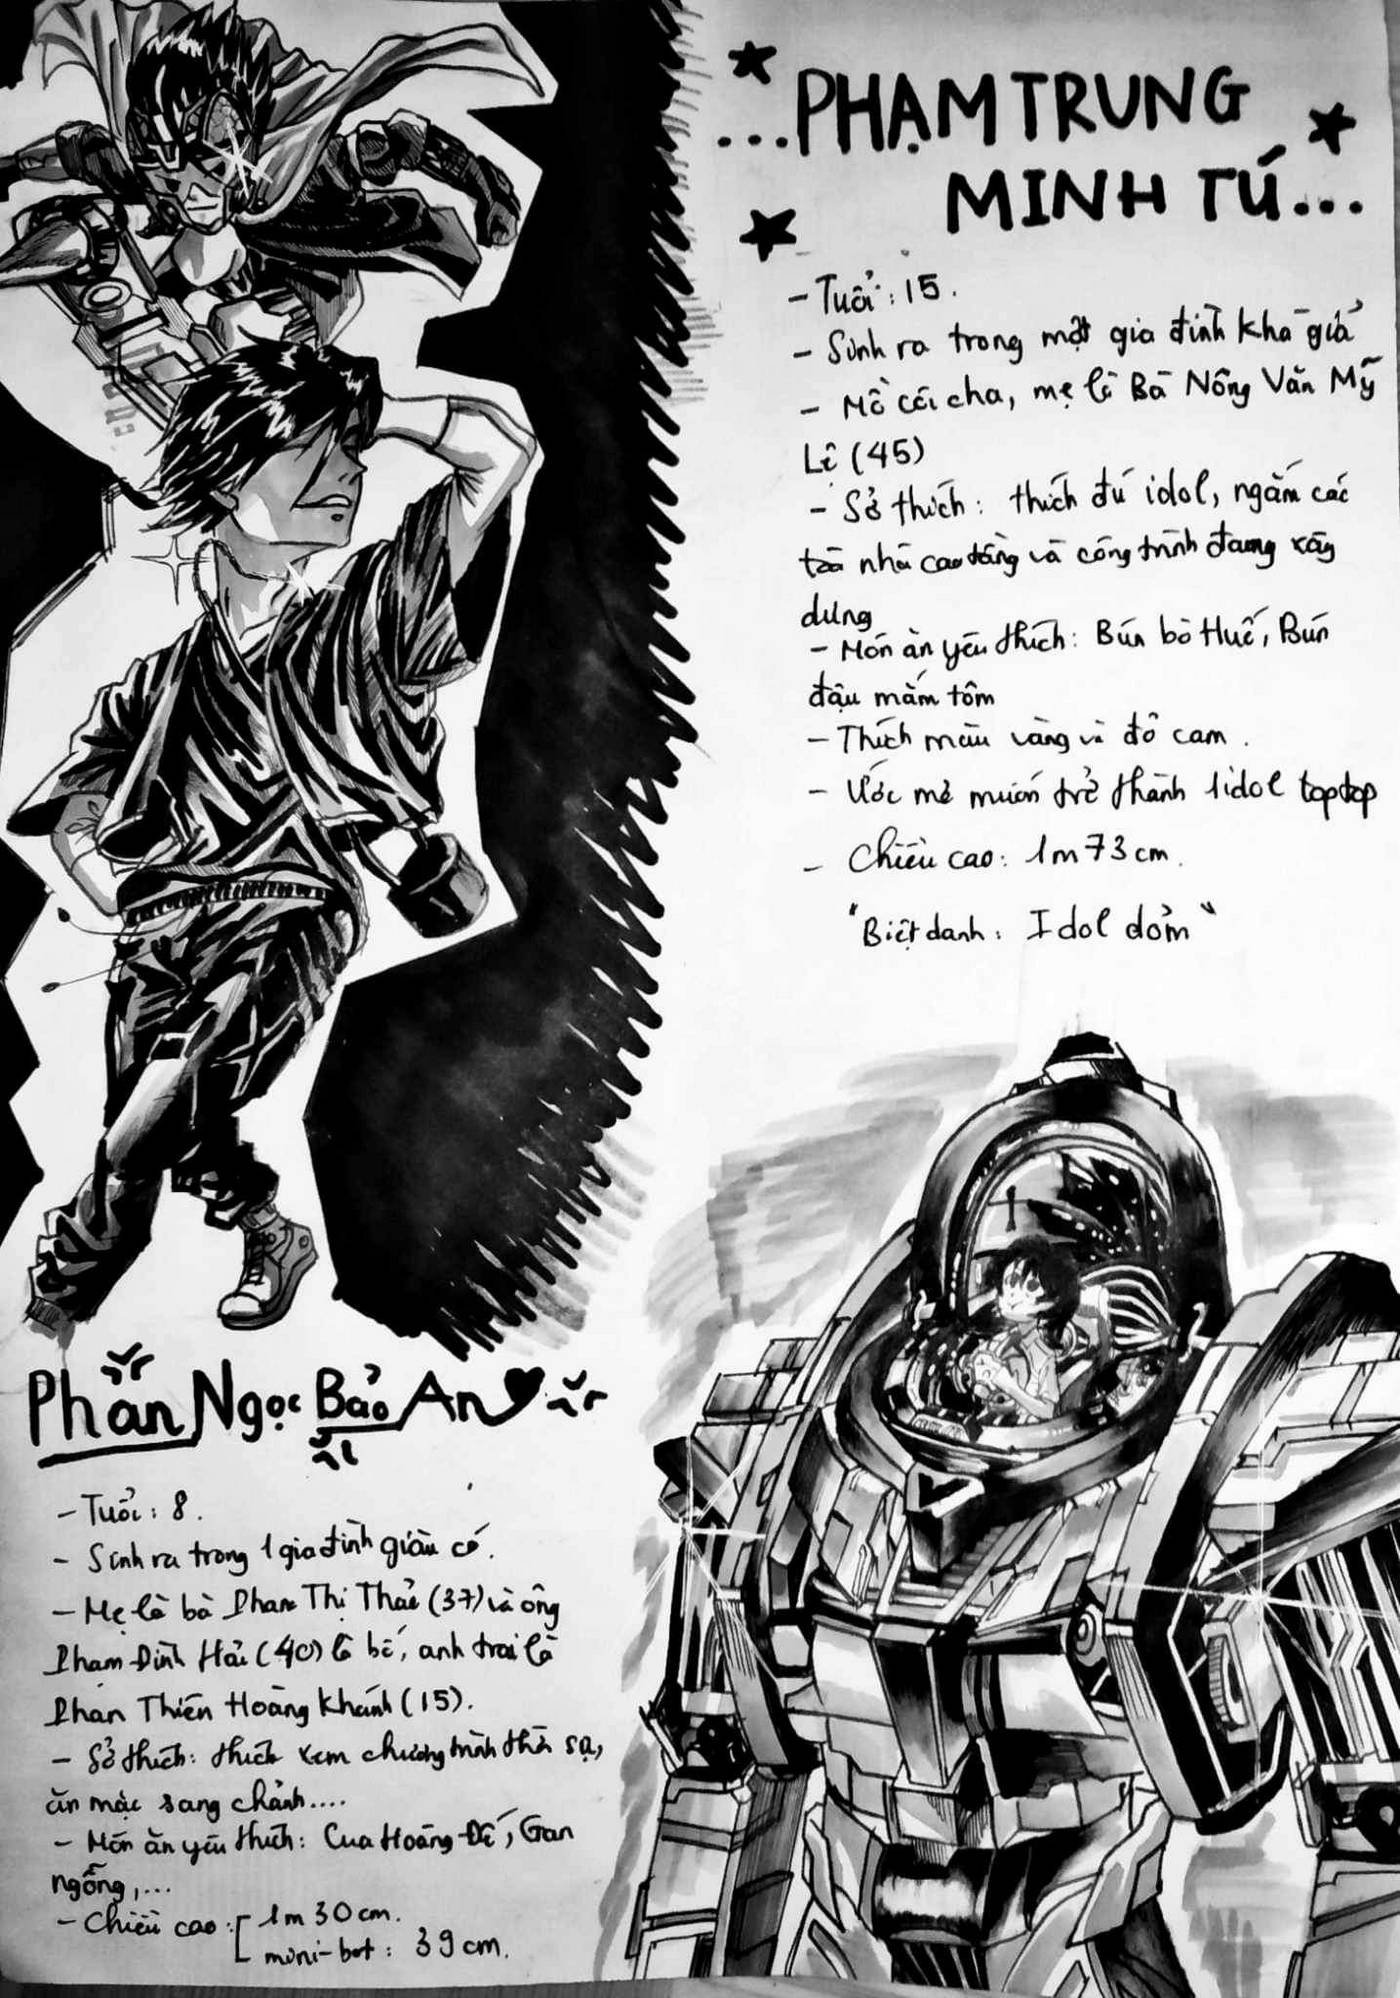 ...PHẠM TRUNG
MINH TÚ...
- Tuổi : 15.
- Sinh ra trong một gia đình khá giả
- Mồ côi cha, mẹ là Bà Nông Văn Mỹ
Lệ (45)
- Sở thích : thích đú idol, ngắm các
toà nhà cao tầng và công trình đang xây
dưng
- Món ăn yêu thích : Bún bò Huế, Bún
đậu mắm tôm
- Thích màu vàng và đỏ cam.
- Ước mơ muốn trở thành 1 idol toptop
- Chiều cao : 1m73cm.
"Biệt danh : Idol dỏm"
Phan Ngọc Bảo An
- Tuổi : 8.
- Sinh ra trong 1 gia đình giàu có.
- Mẹ là bà Phan Thị Thảo (37) và ông
Phạm Đình Hải (40) là bố, anh trai là
Phan Thiên Hoàng Khánh (15).
- Sở thích : thích xem chương trình thần sạ,
ăn mặc sang chảnh....
- Món ăn yêu thích : Cua Hoàng Đế, Gan
ngỗng,...
- Chiều cao : 1m30cm.
mini-bot : 39cm.